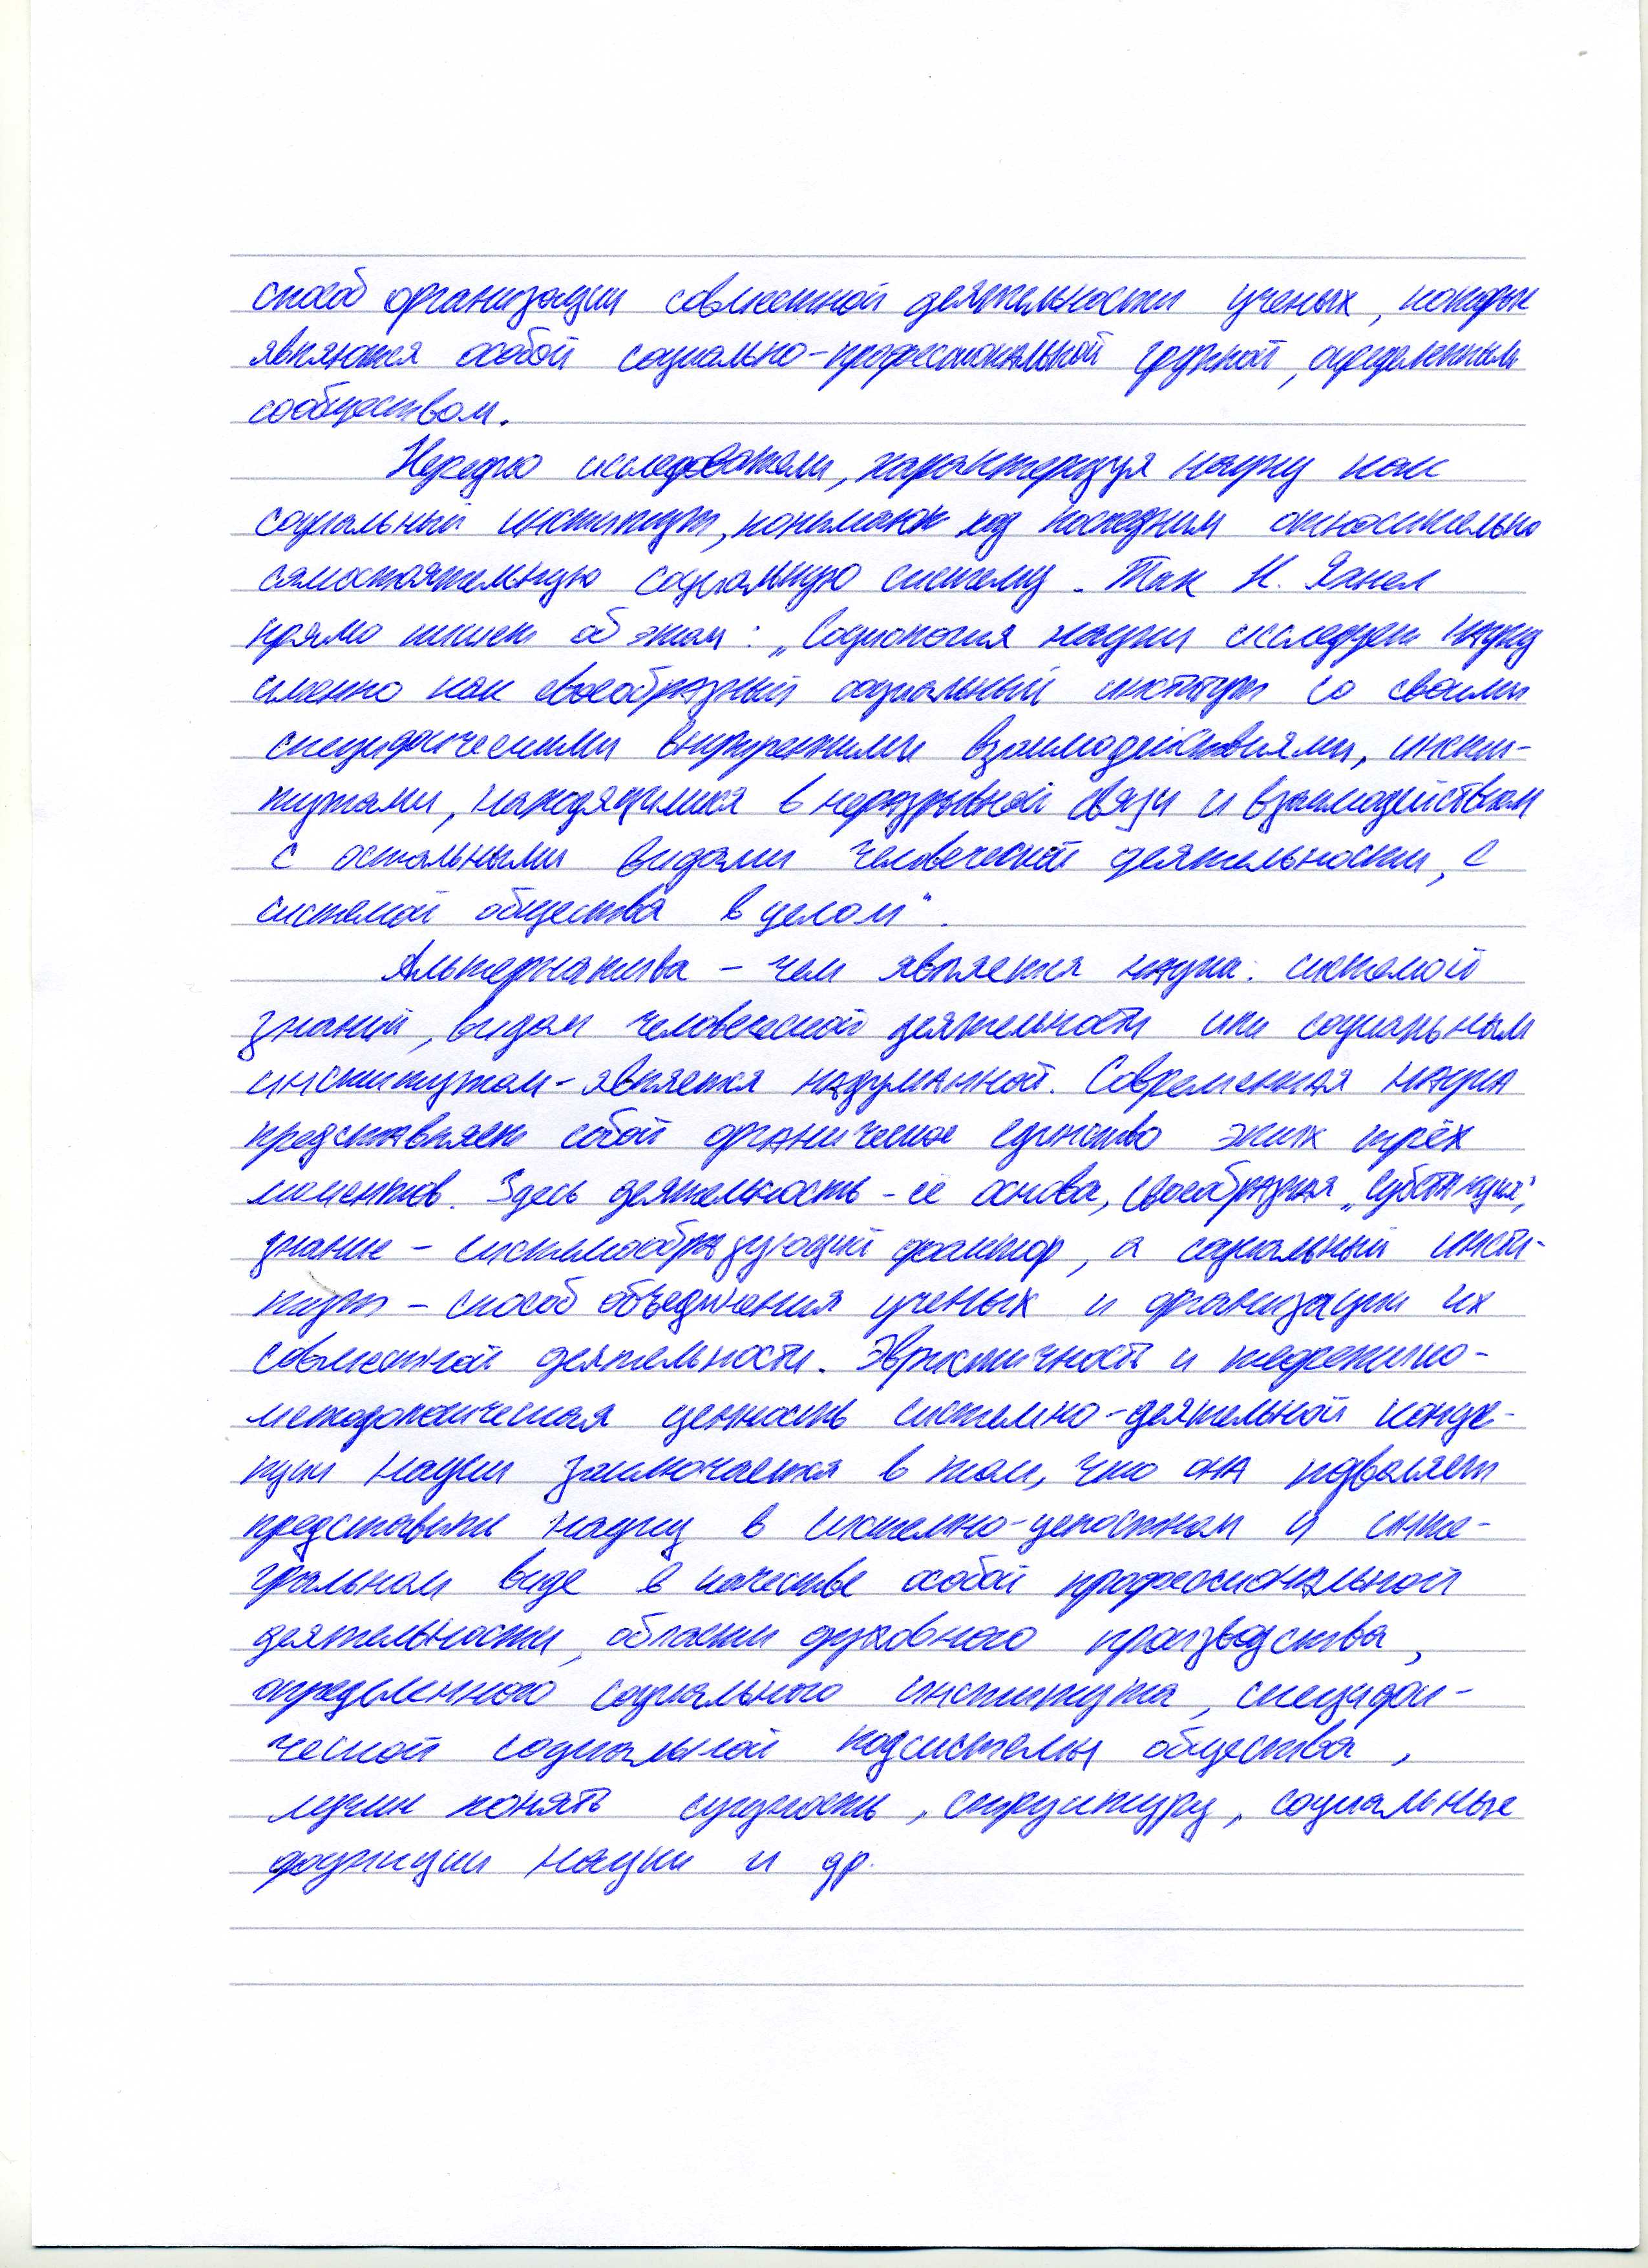 способ организации совместной деятельности ученых, которые
являются особой социально-профессиональной группой, определенным
сообществом.
Нередко исследователи, характеризуя науку как
социальный институт, понимают под последним относительно
самостоятельную социальную систему. Так Н. Яхиел
прямо пишет об этом: „Социология науки исследует науку
именно как своеобразный социальный институт со своими
специфическими внутренними взаимодействиями, инсти-
тутами, находящимися в неразрывной связи и взаимодействии
с остальными видами человеческой деятельности, с
системой общества в целом".
Альтернатива - чем является наука: системой
знаний, видом человеческой деятельности или социальным
институтом - является надуманной. Современная наука
представляет собой органическое единство этих трёх
моментов. Здесь деятельность - её основа, своеобразная „субстанция",
знание - системообразующий фактор, а социальный инсти-
тут - способ объединения ученых и организации их
совместной деятельности. Эвристичность и теоретико-
методологическая ценность системно-деятельной конце-
пции науки заключается в том, что она позволяет
представить науку в системно-целостном и инте-
гральном виде в качестве особой профессиональной
деятельности, области духовного производства,
определенного социального института, специфи-
ческой социальной подсистемы общества,
лучше понять сущность, структуру, социальные
функции науки и др.